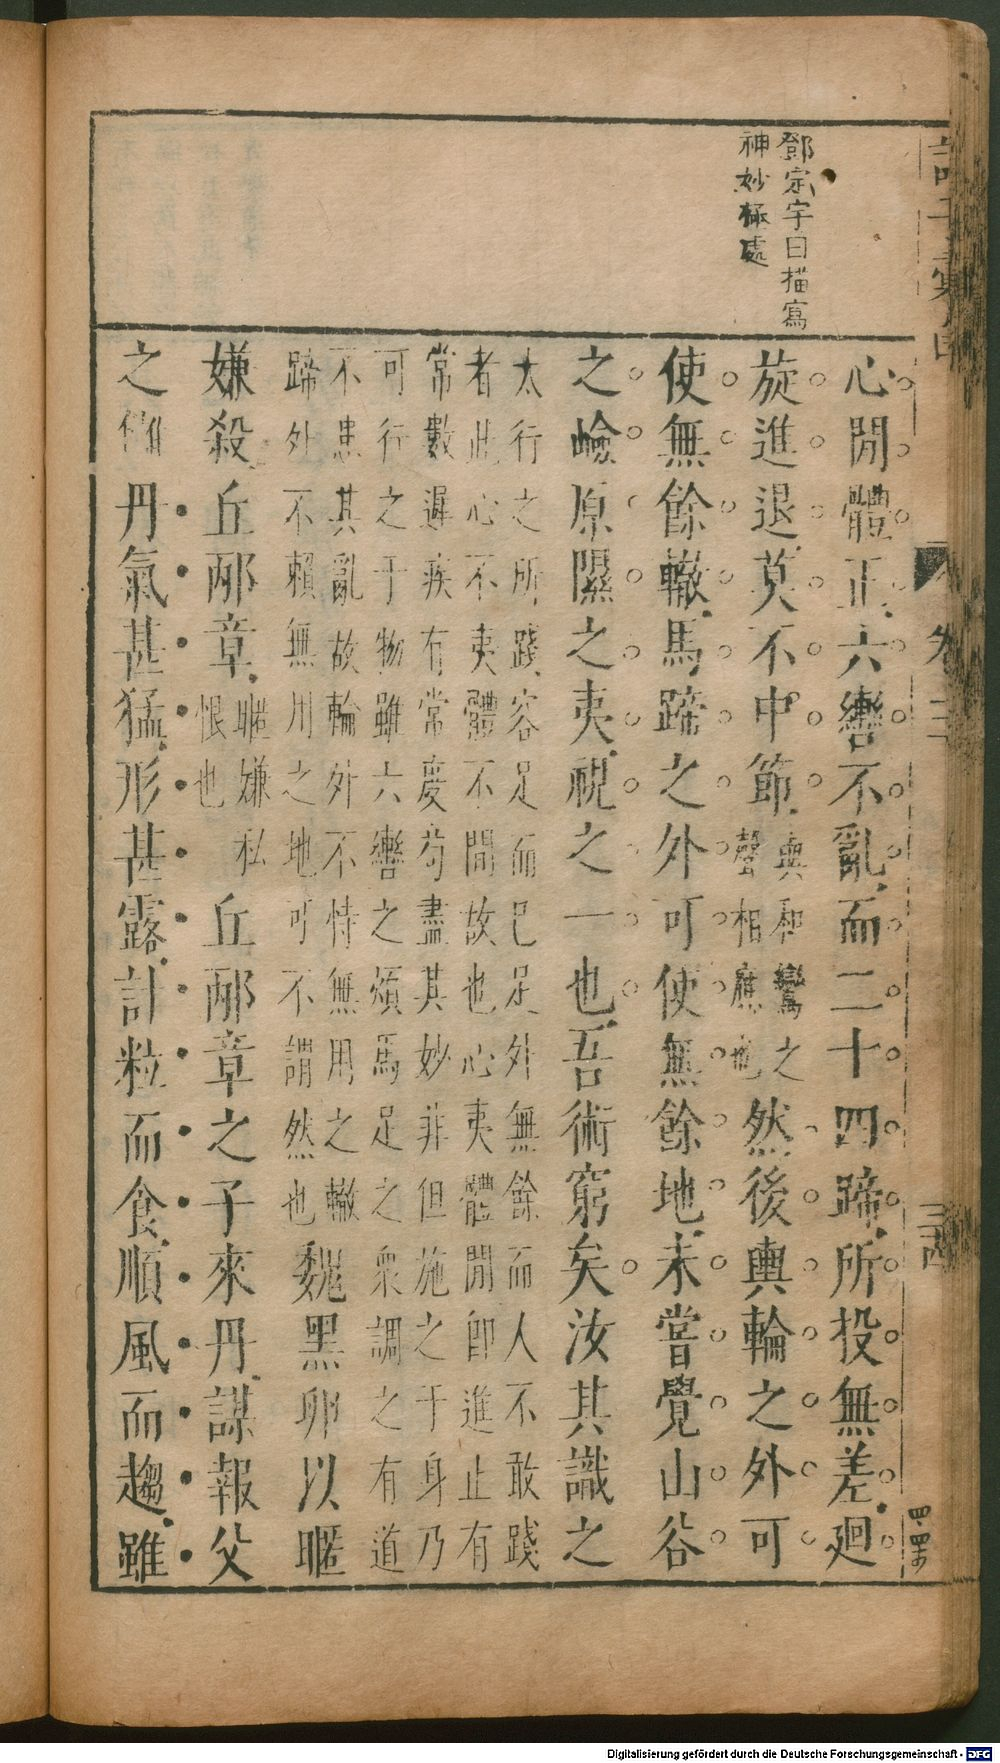 鄧宗宇曰描寫
神妙極處
心閒體正六轡不亂而二十四蹄所投無差廻
旋進退莫不中節
輿和鸞之
聲相應也
然後輿輪之外可
使無餘轍馬蹄之外可使無餘地未嘗覺山谷
之嶮原隰之夷視之一也吾術窮矣汝其識之
太行之所踐容足而已足外無餘而人不敢踐
者此心不夷體不閒故也心夷體閒即進止有
常數遲疾有常度苟盡其妙非但施之于身乃
可行之于物雖六轡之煩馬足之衆調之有道
不患其亂故輪外不恃無用之轍
蹄外不賴無用之地可不謂然也
魏黑卵以暱
嫌殺丘邴章
暱嫌私
恨也
丘邴章之子來丹謀報父
之讎丹氣甚猛形甚露計粒而食順風而趨雖
卷三
三四
四四才
Digitalisierung gefördert durch die Deutsche Forschungsgemeinschaft - DFG